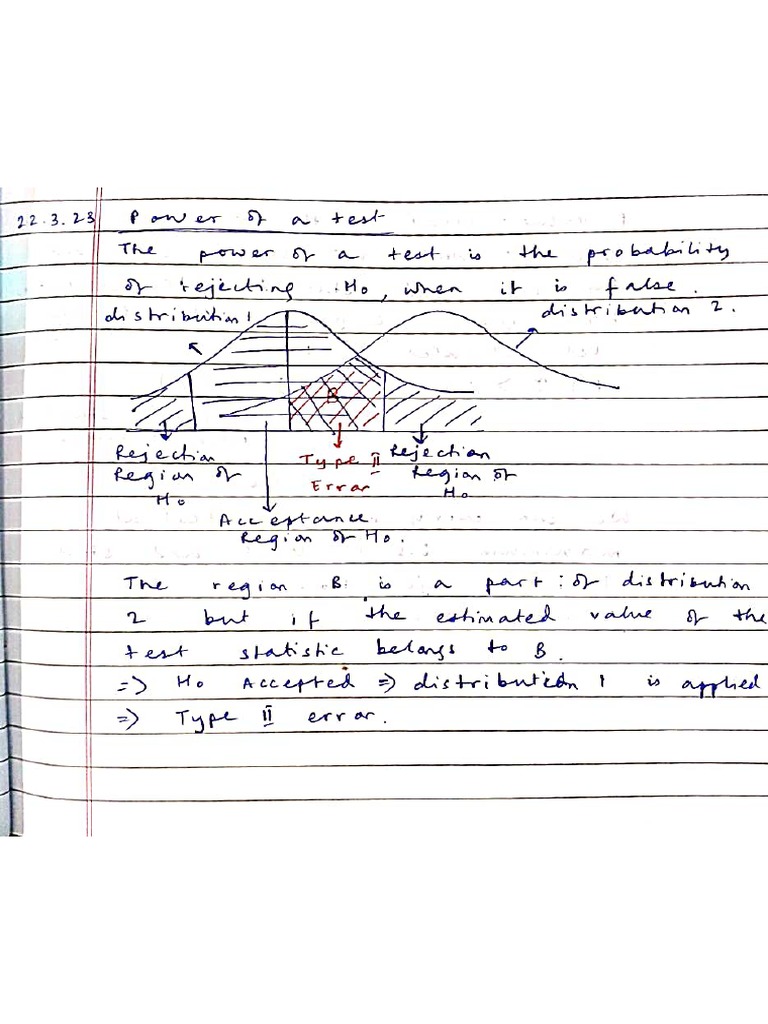 22.3.23 Power of a test
The power of a test is the probability
of rejecting Ho, when it is false.
distribution 1
distribution 2.
B
Rejection
Region of
Ho
Type II
Error
Rejection
Region of
Ho
Acceptance
Region of Ho.
The region B is a part of distribution
2 but if the estimated value of the
test statistic belongs to B.
=> Ho Accepted => distribution 1 is applied
=> Type II error.